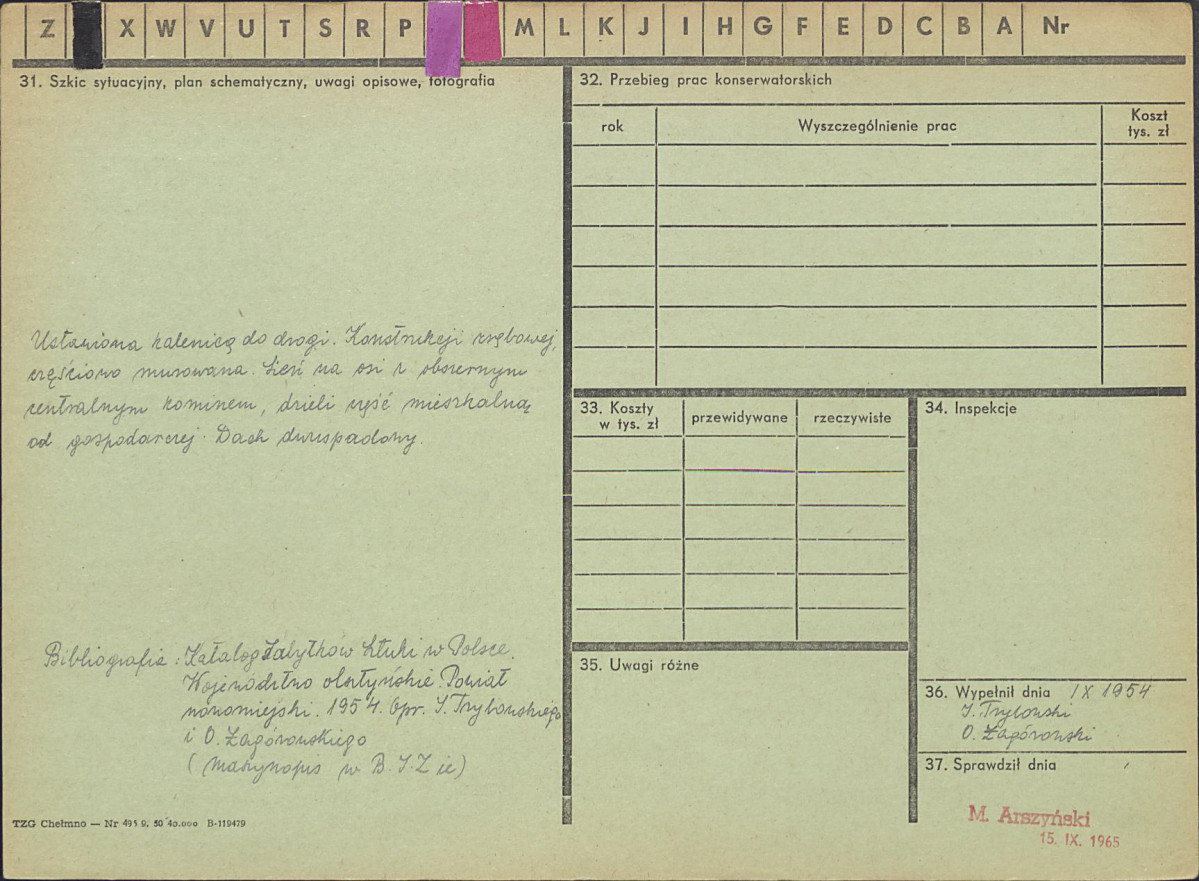 Z X W V U T S R P M L K J I H G F E D C B A Nr
31. Szkic sytuacyjny, plan schematyczny, uwagi opisowe, fotografia
Ustawiona kalenicą do drogi. Konstrukcji zrębowej,
częściowo murowana. Sień na osi z obszernym
centralnym kominem, dzieli część mieszkalną
od gospodarczej. Dach dwuspadowy.
Bibliografia: Katalog Zabytków Sztuki w Polsce.
Województwo olsztyńskie. Powiat
nowomiejski. 1954. Opr. J. Frycowskiego
i O. Zagórowskiego
(Maszynopis w B.I.Z ie)
TZG Chełmno — Nr 495 9. 50 40.000 B-119479
32. Przebieg prac konserwatorskich
rok
Wyszczególnienie prac
Koszt
tys. zł
33. Koszty
w tys. zł
przewidywane
rzeczywiste
34. Inspekcje
35. Uwagi różne
36. Wypełnił dnia IX 1954
O. Zagórowski
37. Sprawdził dnia
M. Arszyński
15. IX. 1965